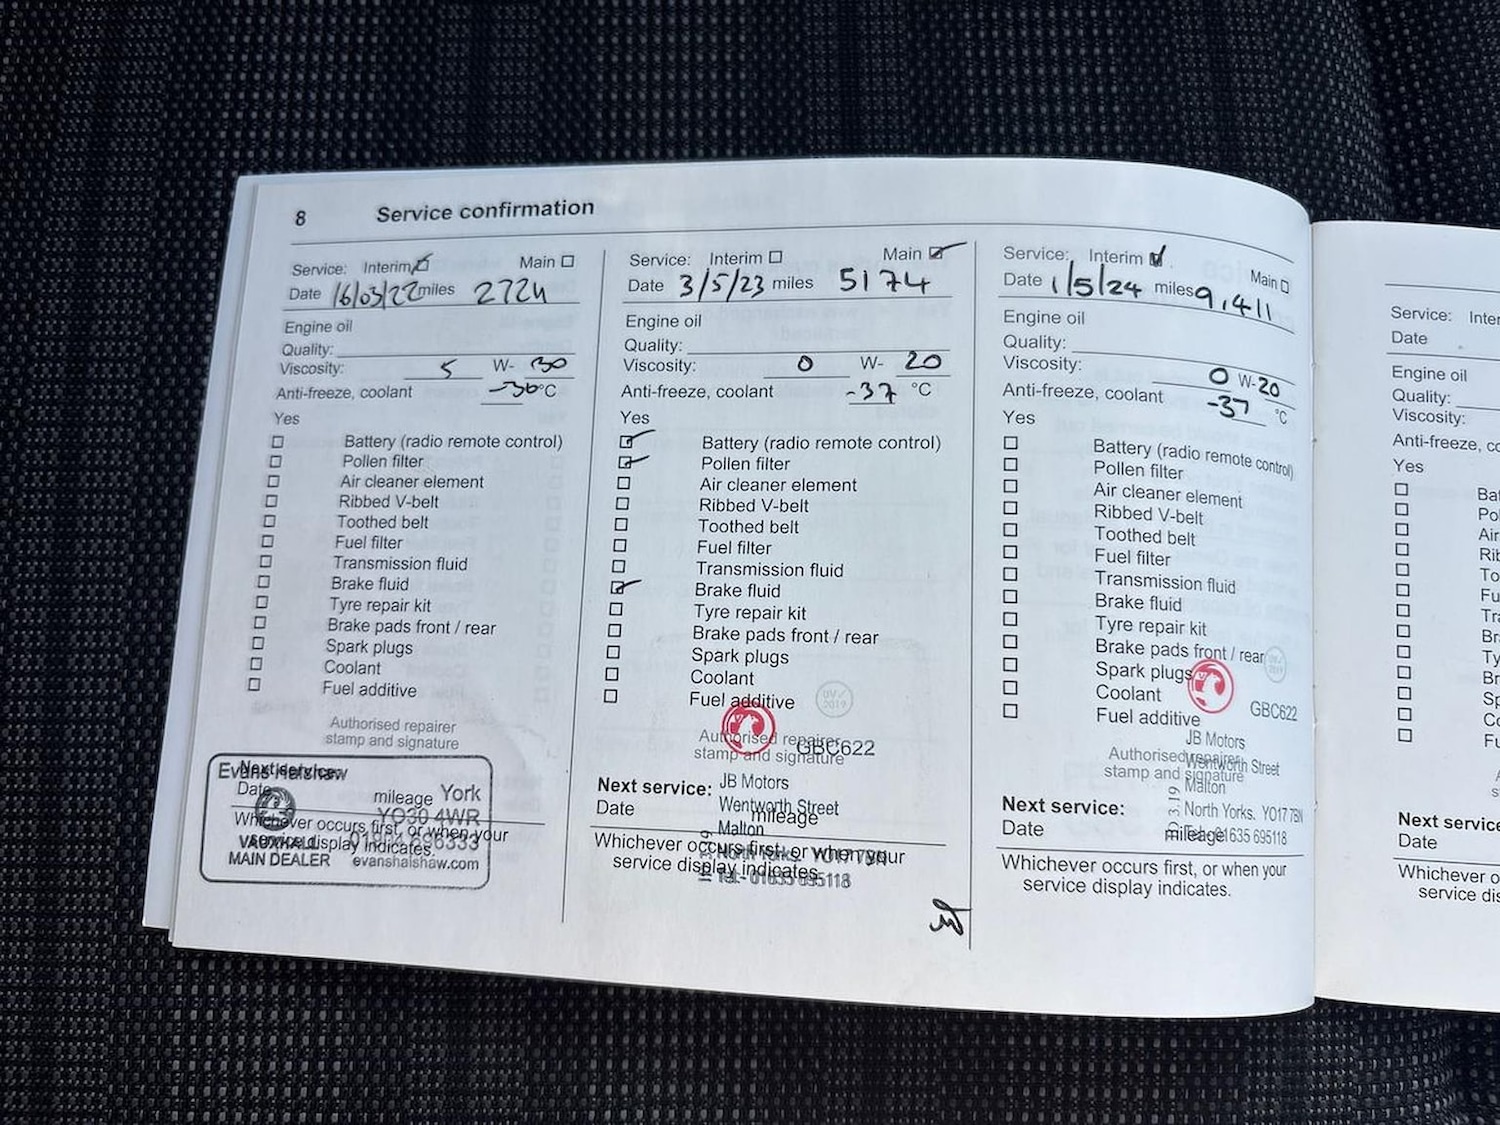 8 Service confirmation
Service: Interim Main
Date 16/03/22 miles 2724
Engine oil
Quality:
Viscosity: 5 W- 30
Anti-freeze, coolant -36°C
Yes
Battery (radio remote control)
Pollen filter
Air cleaner element
Ribbed V-belt
Toothed belt
Fuel filter
Transmission fluid
Brake fluid
Tyre repair kit
Brake pads front / rear
Spark plugs
Coolant
Fuel additive
Authorised repairer
stamp and signature
Next service:
Evans Halshaw
Date mileage York
YO30 4WR
Whichever occurs first, or when your
service display indicates.
VAUXHALL
MAIN DEALER evanshalshaw.com
Service: Interim Main
Date 3/5/23 miles 5174
Engine oil
Quality:
Viscosity: 0 W- 20
Anti-freeze, coolant -37 °C
Yes
Battery (radio remote control)
Pollen filter
Air cleaner element
Ribbed V-belt
Toothed belt
Fuel filter
Transmission fluid
Brake fluid
Tyre repair kit
Brake pads front / rear
Spark plugs
Coolant
Fuel additive
Authorised repairer
stamp and signature
GBC622
Next service: JB Motors
Wentworth Street
Date mileage
Malton
North Yorks. YO17 7BN
Tel:- 01635 695118
Whichever occurs first, or when your
service display indicates.
Service: Interim Main
Date 1/5/24 miles 9,411
Engine oil
Quality:
Viscosity: 0 W-20
Anti-freeze, coolant -37 °C
Yes
Battery (radio remote control)
Pollen filter
Air cleaner element
Ribbed V-belt
Toothed belt
Fuel filter
Transmission fluid
Brake fluid
Tyre repair kit
Brake pads front / rear
Spark plugs
Coolant
Fuel additive
GBC622
JB Motors
Authorised repairer
Wentworth Street
stamp and signature
Malton
Next service: North Yorks. YO17 7BN
Date mileage Tel:- 01635 695118
Whichever occurs first, or when your
service display indicates.
Service: Inter
Date
Engine oil
Quality:
Viscosity:
Anti-freeze, co
Yes
Bat
Pol
Air
Rib
To
Fu
Tra
Br
Ty
Br
Sp
Co
Fu
Next service
Date
Whichever o
service dis